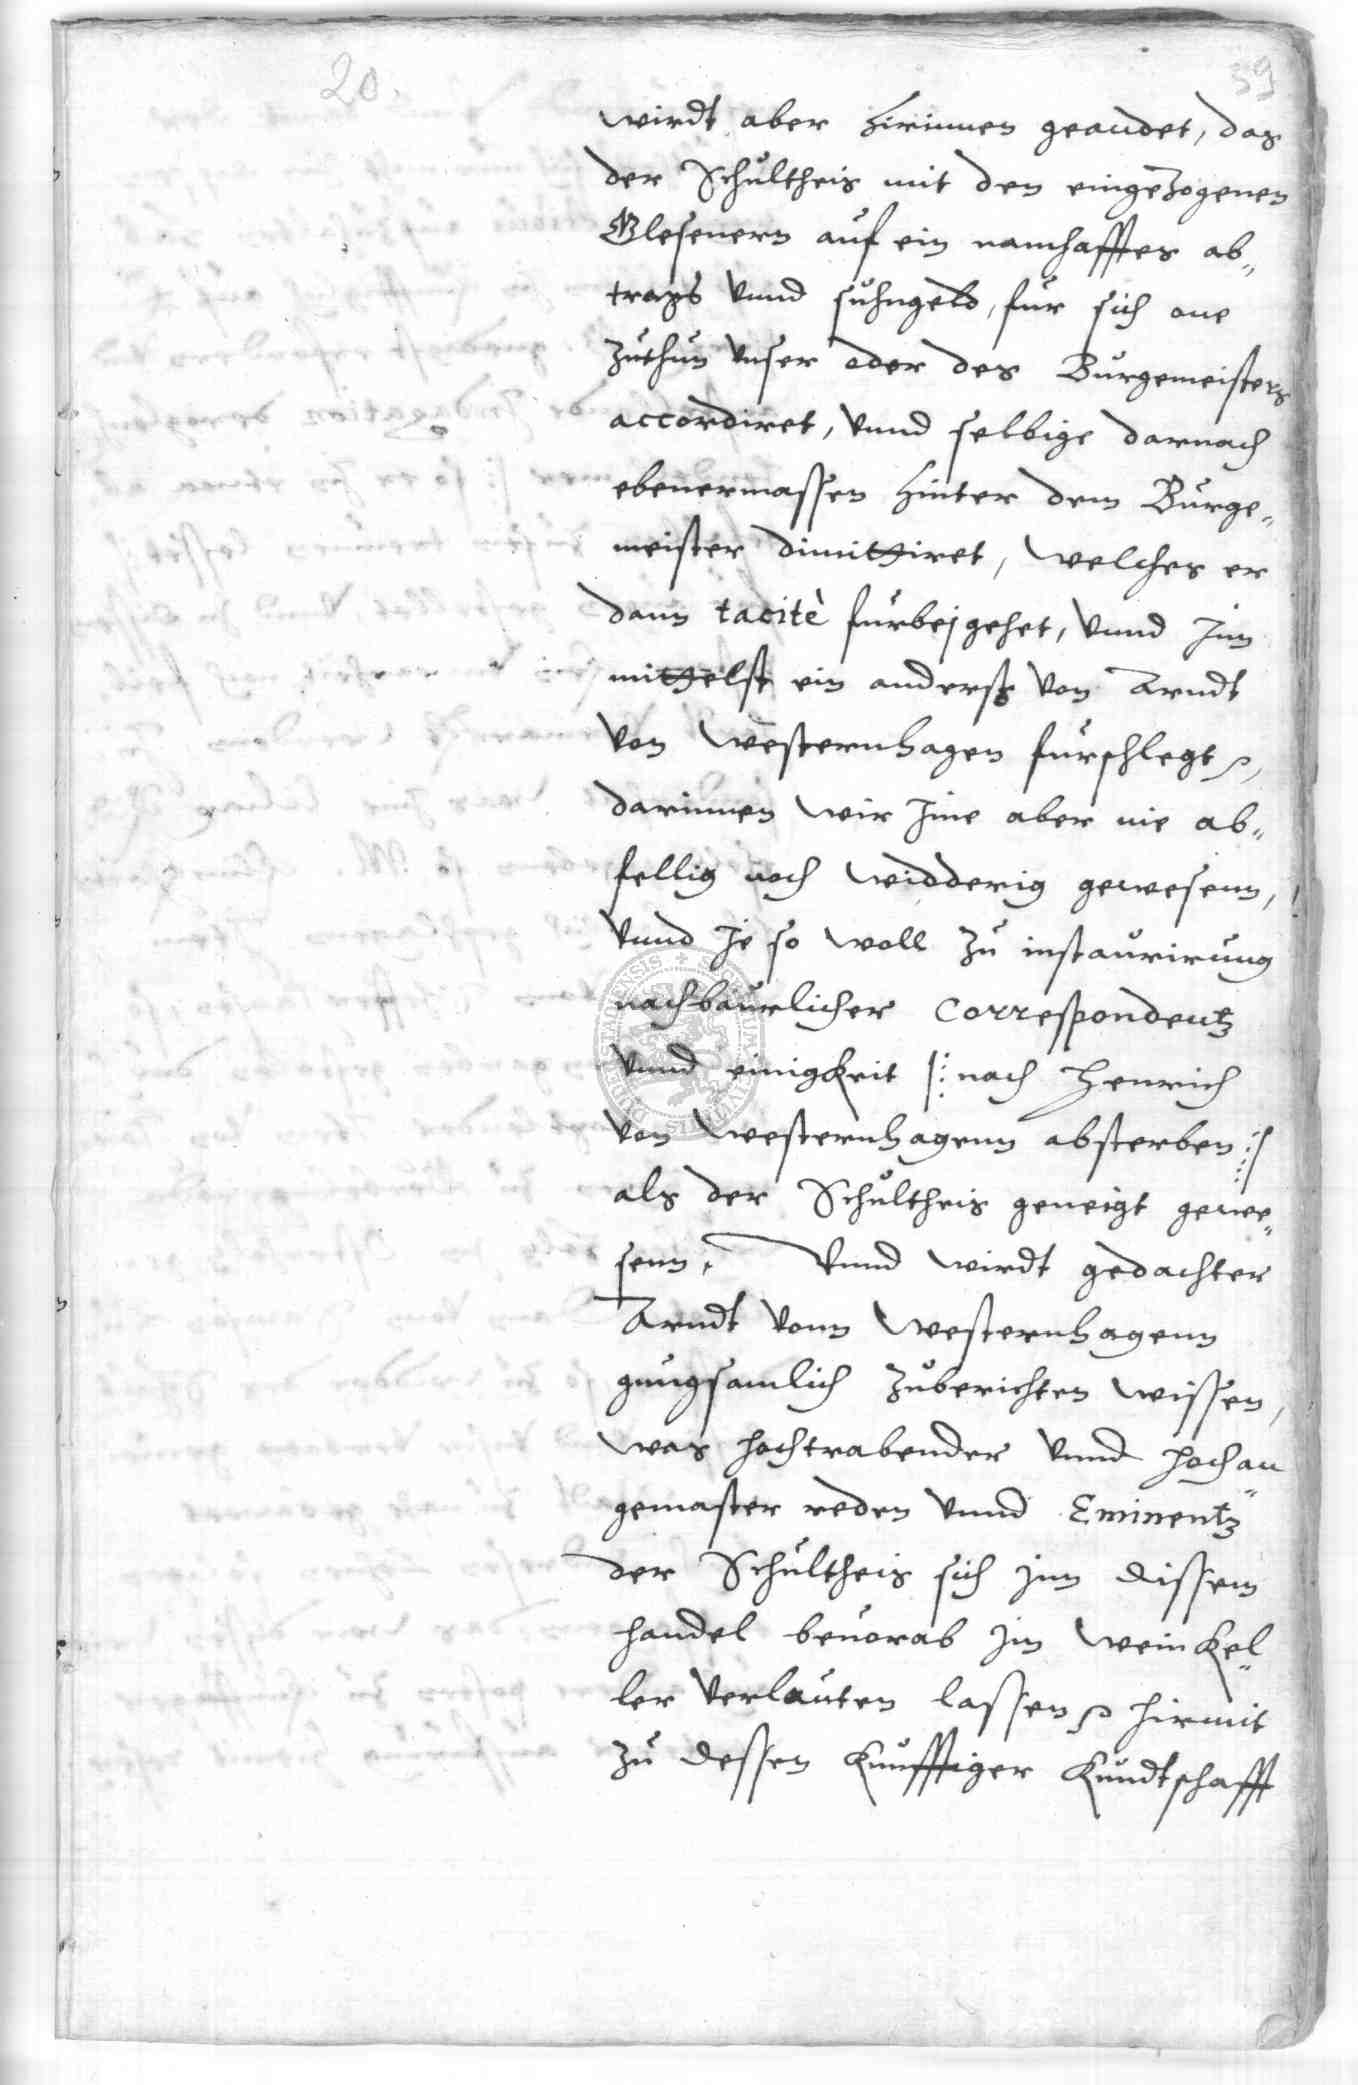 20.
39
wirdt aber hirinnen geandet, das
der Schultheis mit den eingezogenen
Glesenern auf ein namhafftes ab„
trags vnnd suhngeld, fur sich one
zuthun vnser oder des Burgemeisters
accordiret, vnnd selbige darnach
ebenermassen hinter dem Burge„
meister dimittiret, welches er
dann tacitè furbej gehet, vnnd Inn
mittelst ein anderß von Arndt
von Westernhagen furschlegt
darinnen wir Ime aber nie ab„
fellig noch widderig gewesenn,
vnnd Je so woll zu instaurirung
nachbaurlicher Correspondentz
vnnd einigkeit |: nach Henrich
von Westernhagenn absterben :|
als der Schultheis geneigt gewe„
senn. Vnnd wirdt gedachter
Arndt vonn Westernhagenn
gnugsamlich zuberichten wissen,
was hochtrabender vnnd hochan„
gemaster reden vnnd Eminentz
der Schultheis sich Inn dissem
handel beuorab Im Weinkel„
ler verlauten lassen hirmit
zu dessen kunfftiger kundtschafft
SIGILLUM CIVITATIS DUDERSTADENSIS